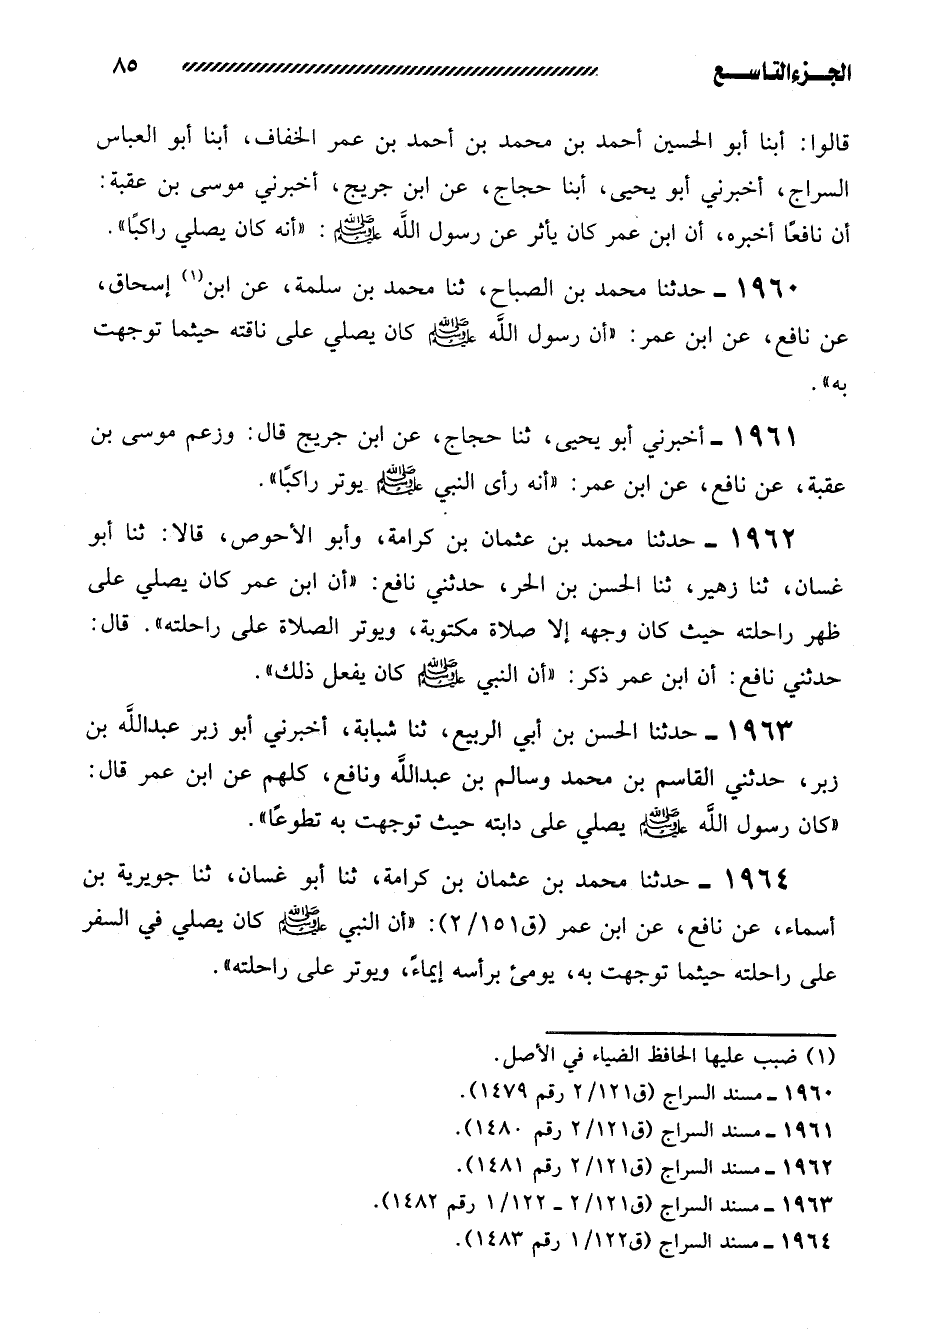 الجزء التاسع ٨٥
قالوا: أبنا أبو الحسين أحمد بن محمد بن أحمد بن عمر الخفاف، أبنا أبو العباس
السراج، أخبرني أبو يحيى، أبنا حجاج، عن ابن جريج، أخبرني موسى بن عقبة:
أن نافعًا أخبره، أن ابن عمر كان يأثر عن رسول اللَّه ﷺ : «أنه كان يصلي راكبًا».
١٩٦٠ ـ حدثنا محمد بن الصباح، ثنا محمد بن سلمة، عن ابن(١) إسحاق،
عن نافع، عن ابن عمر: «أن رسول اللَّه ﷺ كان يصلي على ناقته حيثما توجهت
به».
١٩٦١ ـ أخبرني أبو يحيى، ثنا حجاج، عن ابن جريج قال: وزعم موسى بن
عقبة، عن نافع، عن ابن عمر: «أنه رأى النبي ﷺ يوتر راكبًا».
١٩٦٢ ـ حدثنا محمد بن عثمان بن كرامة، وأبو الأحوص، قالا: ثنا أبو
غسان، ثنا زهير، ثنا الحسن بن الحر، حدثني نافع: «أن ابن عمر كان يصلي على
ظهر راحلته حيث كان وجهه إلا صلاة مكتوبة، ويوتر الصلاة على راحلته». قال:
حدثني نافع: أن ابن عمر ذكر: «أن النبي ﷺ كان يفعل ذلك».
١٩٦٣ ـ حدثنا الحسن بن أبي الربيع، ثنا شبابة، أخبرني أبو زبر عبداللَّه بن
زبر، حدثني القاسم بن محمد وسالم بن عبداللَّه ونافع، كلهم عن ابن عمر قال:
«كان رسول اللَّه ﷺ يصلي على دابته حيث توجهت به تطوعًا».
١٩٦٤ ـ حدثنا محمد بن عثمان بن كرامة، ثنا أبو غسان، ثنا جويرية بن
أسماء، عن نافع، عن ابن عمر (ق١٥١/ ٢): «أن النبي ﷺ كان يصلي في السفر
على راحلته حيثما توجهت به، يومئ برأسه إيماءً، ويوتر على راحلته».
(١) ضبب عليها الحافظ الضياء في الأصل.
١٩٦٠ ـ مسند السراج (ق١٢١/ ٢ رقم ١٤٧٩).
١٩٦١ ـ مسند السراج (ق١٢١/ ٢ رقم ١٤٨٠).
١٩٦٢ ـ مسند السراج (ق١٢١/ ٢ رقم ١٤٨١).
١٩٦٣ ـ مسند السراج (ق١٢١/ ٢ ـ ١٢٢/ ١ رقم ١٤٨٢).
١٩٦٤ ـ مسند السراج (ق١٢٢/ ١ رقم ١٤٨٣).